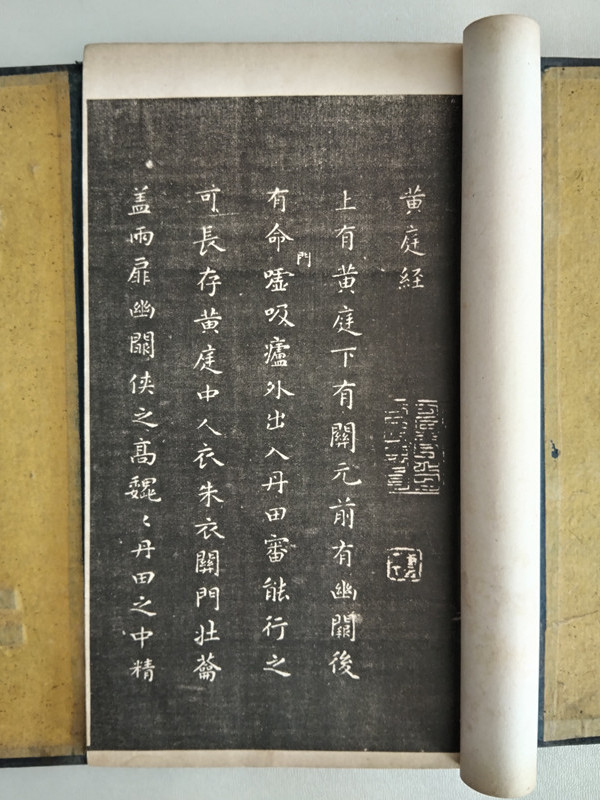 黄庭経
上有黄庭下有關元前有幽闕後
有命門噓吸廬外出入丹田審能行之
可長存黄庭中人衣朱衣關門壯蘥
盖兩扉幽闕侠之高巍〻丹田之中精